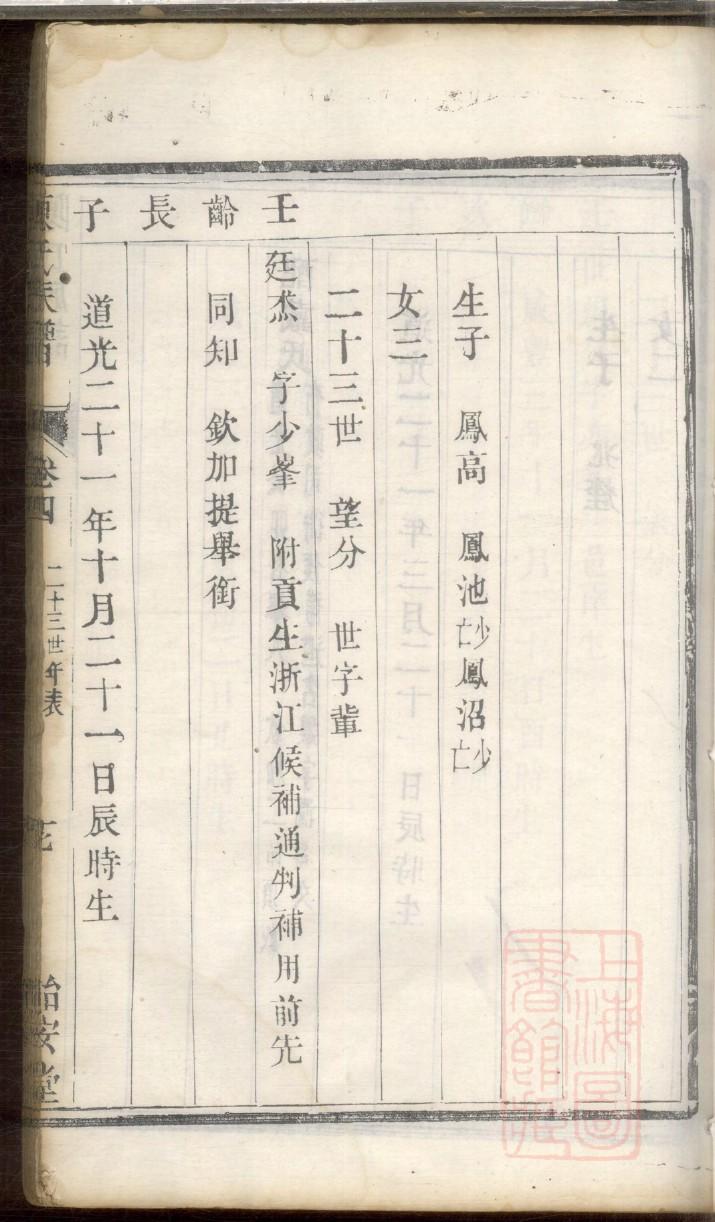 生子　鳳高　鳳池少亡鳳沼少亡
女三
二十三世　望分　世字輩
壬齡長子
廷杰　字少峯　附貢生浙江候補通判補用前先
同知　欽加提舉銜
道光二十一年十月二十一日辰時生
陳氏族譜　卷四　二十三世年表　怡安堂
上海圖書館藏